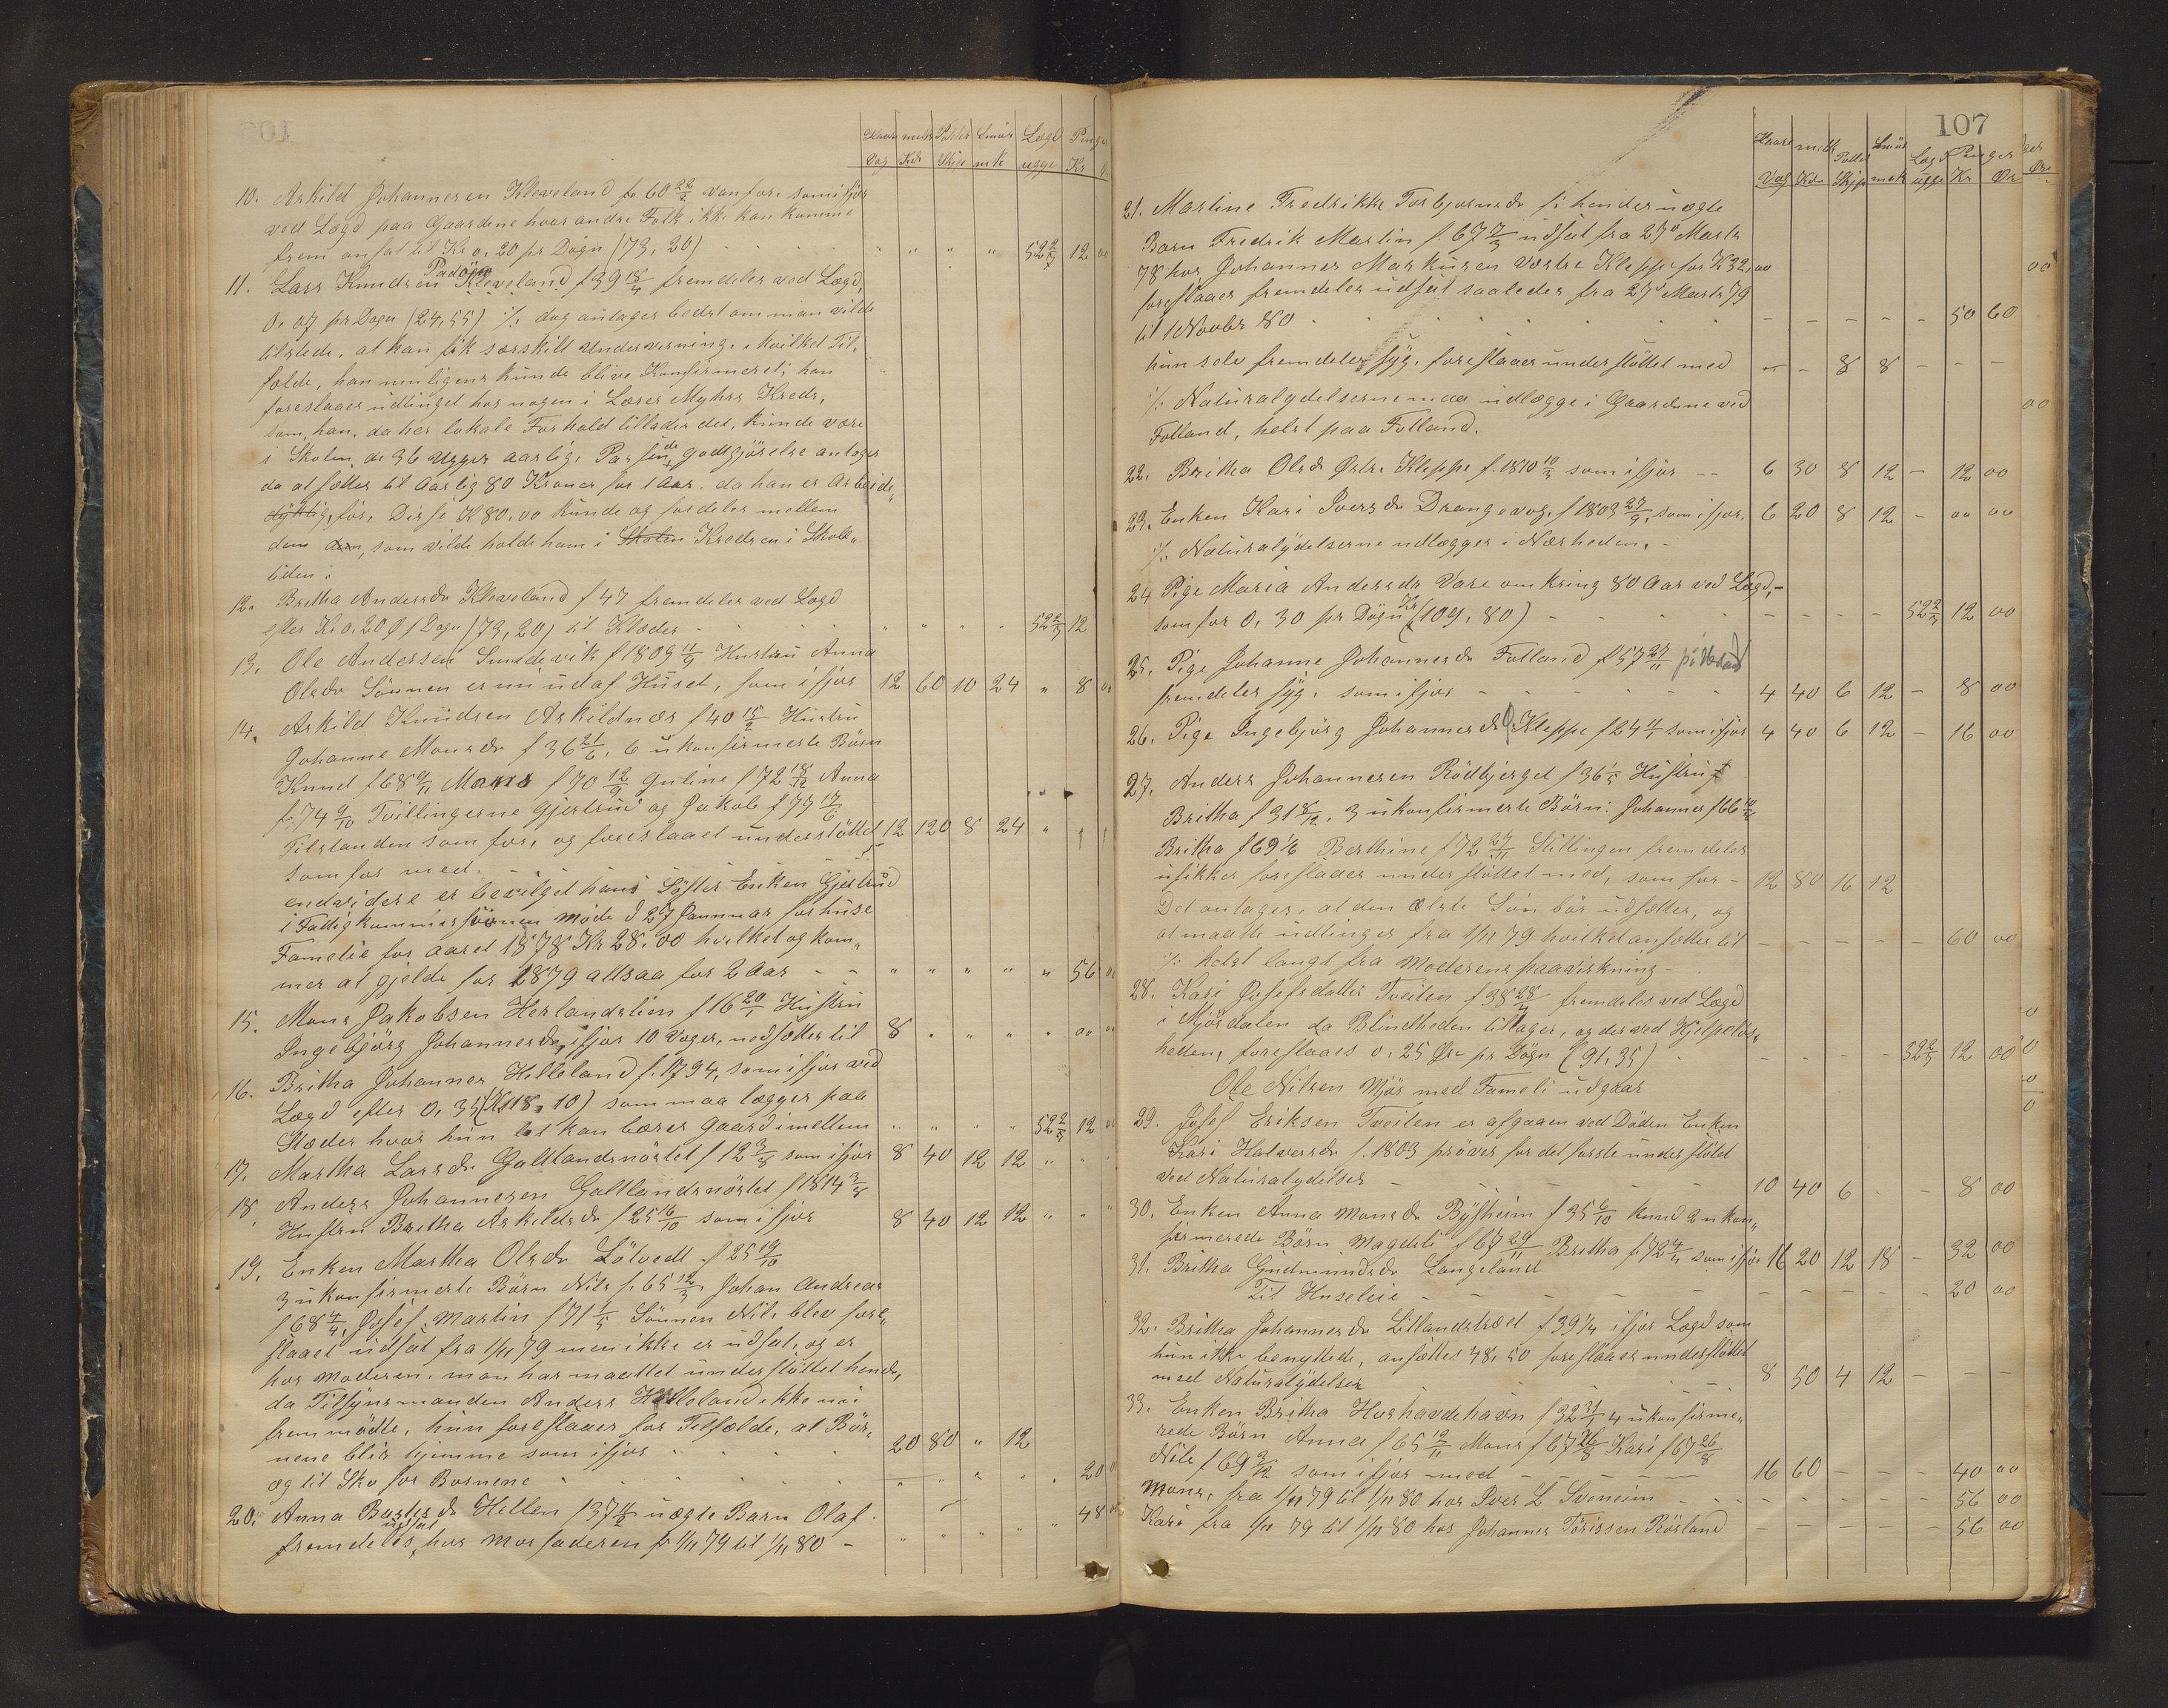 Havre melk Poteter Smör Lægd Penger
Vog Kdr Skjp mk ugger Kr Ø
10. Askild Johannesen Kleveland f. 60 22/2 vanfør, som ifjor
ved Lægd paa Gaardene hvor andre Folk ikke kan komme
frem ansat til Kr 0,20 pr Døgn (73,20) " " " " 52 2/7 12 00
11. Lars Knudsen Kleveland f 39 18/4 fremdeles ved Lægd,
0,07 pr Døgn (24,55) ./. dog antages bedst om man vilde
tilstede, at han fik særskilt Undervisning, i hvilket Til-
fælde, han muligens kunde blive Konfirmeret; han
foreslaaes udtinget hos nogen i Lærer Myhrs Kreds,
som, han, da her lokale Forhold tillader det, kunde være
i Skolen de 36 Uger aarlig. godtgjörelse antages
da at sættes til Aarlig 80 Kroner for 1 Aar, da han er Arbeids-
dyktig, før, Disse K 80,00 kunde og fordeles mellem
dem dem, som vilde holde ham i Skolen Kredsen i Skole-
tiden:
12. Britha Andersdr Kleveland f 47 fremdeles ved Lægd
efter Kr 0,20 Ø f Døgn (73,20) til Klæder 52 2/7 12
13. Ole Andersen Smådevik f 1809 11/9 Hustru Anna
Olsdr Sønnen er nu ud af Huset, som ifjor 12 60 10 24 " 8 00
14. Askild Knudsen Askildnes f 40 15/2 Hustru
Johanne Monsdr f 36 21/6, 6 ukonfirmerte Börn
Knud f 68 9/11 Mons f 70 12/9 Guline f 72 18/12 Anna
f. 74 9/10 Tvillingerne Gjertrud og Jakob f 77 17/6
Tilstanden som för, og foreslaaet understöttet 12 120 8 24 "
som för med.
endvidere er bevilget hans Söster Enken Gjertrud
i Fattigkommissionen Möde d 27 Januar for huse
Familie for aaret 1878 Kr 28,00 hvilket og kom-
mer at gjelde for 1879 altsaa for 2 Aar - - " " " " " 56 00
15. Mons Jakobsen Herlandslien f 16 20/1 Hustru
Ingebjörg Johannesdr, ifjor 10 Voger, nedsættes til 8 " " " " 00 00
16. Britha Johannes Helleland f. 1794, som ifjor ved
Lægd efter 0,35 (K 118,10) som maa lægges paa
Stæder hvor hun let kan bæres Gaard imellem " " " " 52 2/7 12 00
17. Martha Larsdr Galtlandsnöstet f 12 3/8 som ifjor 8 40 12 12 " "
18 Anders Johannesen Galtlandsnöstet f 1814 3/8
Hustru Britha Askildsdr f 25 16/10 som ifjor 8 40 12 12 " "
19. Enken Martha Olsdr Lötvedt f 25 19/10
3 ukonfirmerte Börn Nils f. 65 12/3 Johan Andreas
f 68 4/4, Josef Martin f 71 1/5 Sönnen Nils blev fore-
slaaet udsat fra 1/11 79 men ikke er udsat, og er
hos moderen. man har maattet understöttet hende,
da Tilsynsmanden Anders Helleland ikke nu
fremmödte, hun foreslaaes for Tilfælde, at Bör-
nene blir hjemme som ifjor 20 80 " 12
og til Sko for Børnene " " " " 20 00
20. Anna Bastesdr Hellen f 37 4/2 uægte Barn Olaf
fremdeles udsat, hos Morfaderen fr 1/11 79 til 1/11 80 - " " " " " 48 00
107
Havre melk Potet Smör Lægd Penger
Vog Kdr Skjp mrk ugge Kr Ør
21. Martine Fredrikke Torbjørnsdr f: hendes uægte
Barn Fredrik Martin f. 67 7/3 udsat fra 27d Marts
78 hos Johannes Markusen Vestre Kleppe for K 32,00
foreslaaes fremdeles udsat saaledes fra 27d Marts 79
til 1 Novbr 80 - - - - - 50 60
hun selv fremdeles syg, foreslaaes understöttet med - - 8 8 - - -
./. Naturalydelserne maa udlægge i Gaardene ved
Følland, helst paa Følland.
22. Britha Olsdr Østre Kleppe f. 1810 10/3 som ifjor -- 6 30 8 12 - 12 00
23. Enken Kari Iversdr Drangevog, f 1803 27/9, som ifjor, 6 20 8 12 - 00 00
./. Naturalydelserne udlægges i Nærheden. -
24 Pige Maria Andersdr Vare omkring 80 Aar ved Lægd,-
som for 0,30 pr Dögn (Kr 109,80) - - - - - 52 2/7 12 00
25. Pige Johanne Johannesdr Følland f 57 27/11
fremdeles syg. som ifjor - - - 4 40 6 12 - 8 00
26. Pige Ingebjörg Johannesdr Ø Kleppe f 24 4/1 som ifjor 4 40 6 12 - 16 00
27. Anders Johannesen Rödbjerget f 36 1/5 Hustru
Britha f 31 8/12, 3 ukonfirmerte Börn: Johannes f 66
Britha f 69 1/6 Berthine f 72 27/11 Stillingen fremdeles
usikker foreslaaes understöttet med, som för - 12 80 16 12
Det antages, at den ælste Sön bör udsættes, og
at maatte udtinges fra 1/11 79 hvilket ansættes til - - - - - 60 00
./. helst langt fra Moderens paavirkning -
28. Kari Josefsdatter Tveiten f 38 28/4 fremdeles ved Lægd
i Mjösdalen da Blindheden tiltager, og derved Hjelpelös-
heden, foreslaaes 0,25 Øre pr Dögn (91,35) - - - - 52 2/7 12 00
Ole Nilsen Mjös med Fameli udgaar
29. Josef Eriksen Tveiten er afgaaen ved Döden Enken
Kari Halversdr f. 1803 pröves for det förste understöttet
ved Naturalydelser - - - 10 40 6 - - 8 00
30. Enken Anna Monsdr Bysheim f 35 6/10 kund 2 ukon-
firmerede Börn Magdeli f 67 29/11 Britha f. 72 4/4 som ifjor 16 20 12 18 - 32 00
31. Britha Gudmundsdr Langeland
Til Huseleie - - - - - - 20 00
32. Britha Johannesdr Litlandstræet f 39 1/4 ifjor Lægd som
hun ikke benyttede, ansættes 48,50 foreslaaes understöttet
med Naturalydelser 8 50 4 12 - - -
33. Enken Britha Hushavdehavn f 32 31/1 4 ukonfirme-
rede Börn Anna f 65 19/11 Mons f 67 26/8 Kari f 67 26/8
Nils f 69 2/12 som ifjor med - - - 16 60 - - - 40 00
Mons, fra 1/11 79 til 1/11 80 hos Iver L Sveneim - - - - - 56 00
Kari fra 1/11 79 til 1/11 80 hos Johannes Torissen Rösland - - - - - 56 00